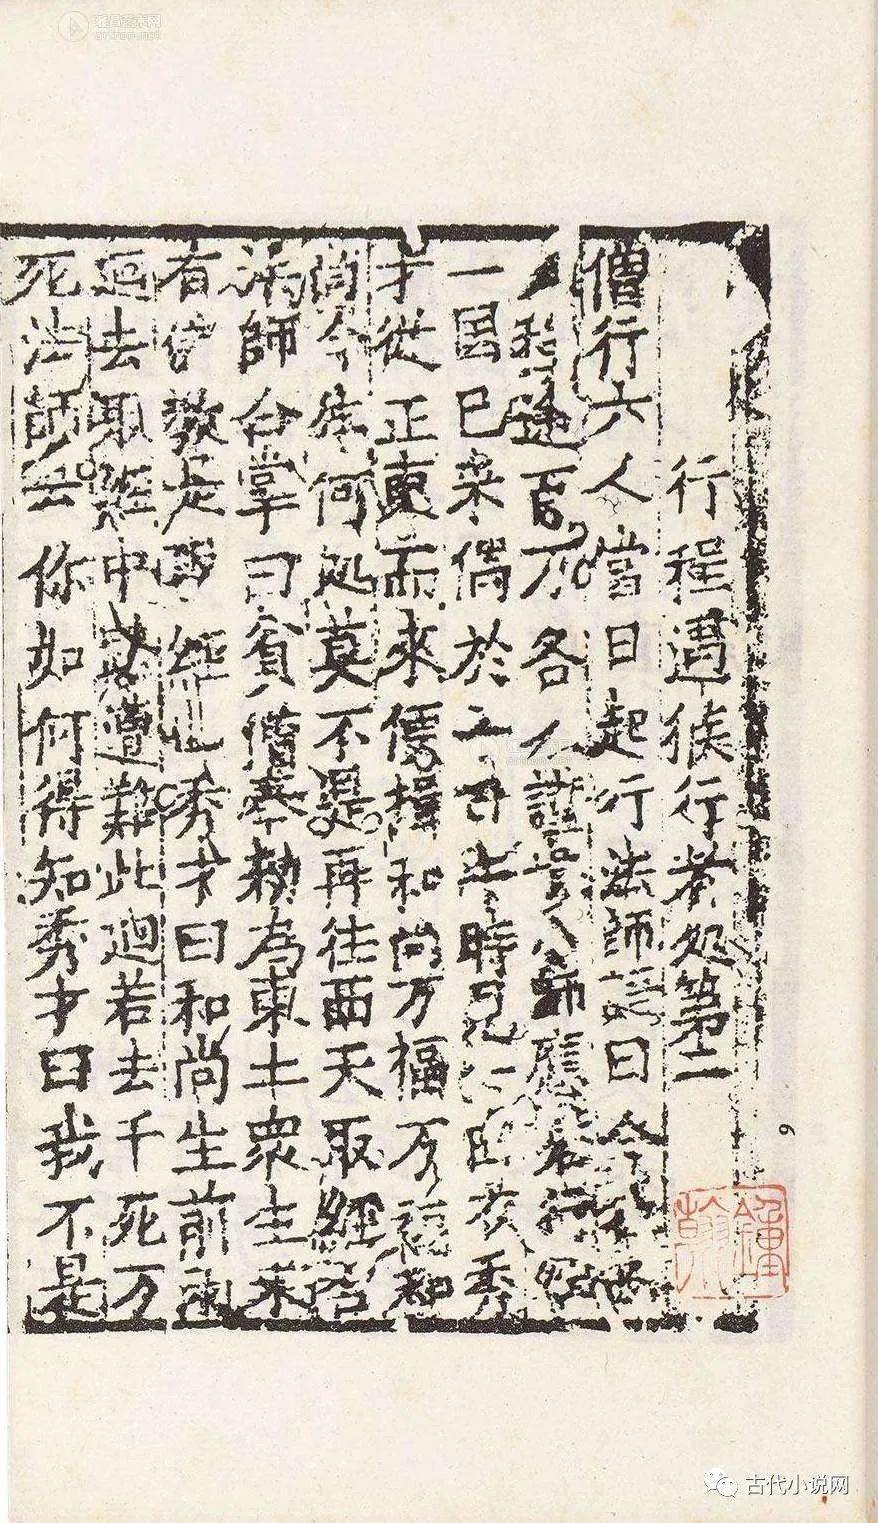 行程遇猴行者処第二
僧行六人當日起行法師語曰今
程途百万各人謹慎小師應諾行經
一国已來偶於一日午時見一白衣秀
才從正東而來便揖和尚万福万福和
尚今往何処莫不是再往西天取經否
法師合掌曰貧僧奉勑為東土衆生未
有佛教是取經也秀才曰和尚生前兩
廻去取經中路遭難此廻若去千死万
死法師云你如何得知秀才曰我不是
6
雅昌艺术网
artron.net
古代小说网